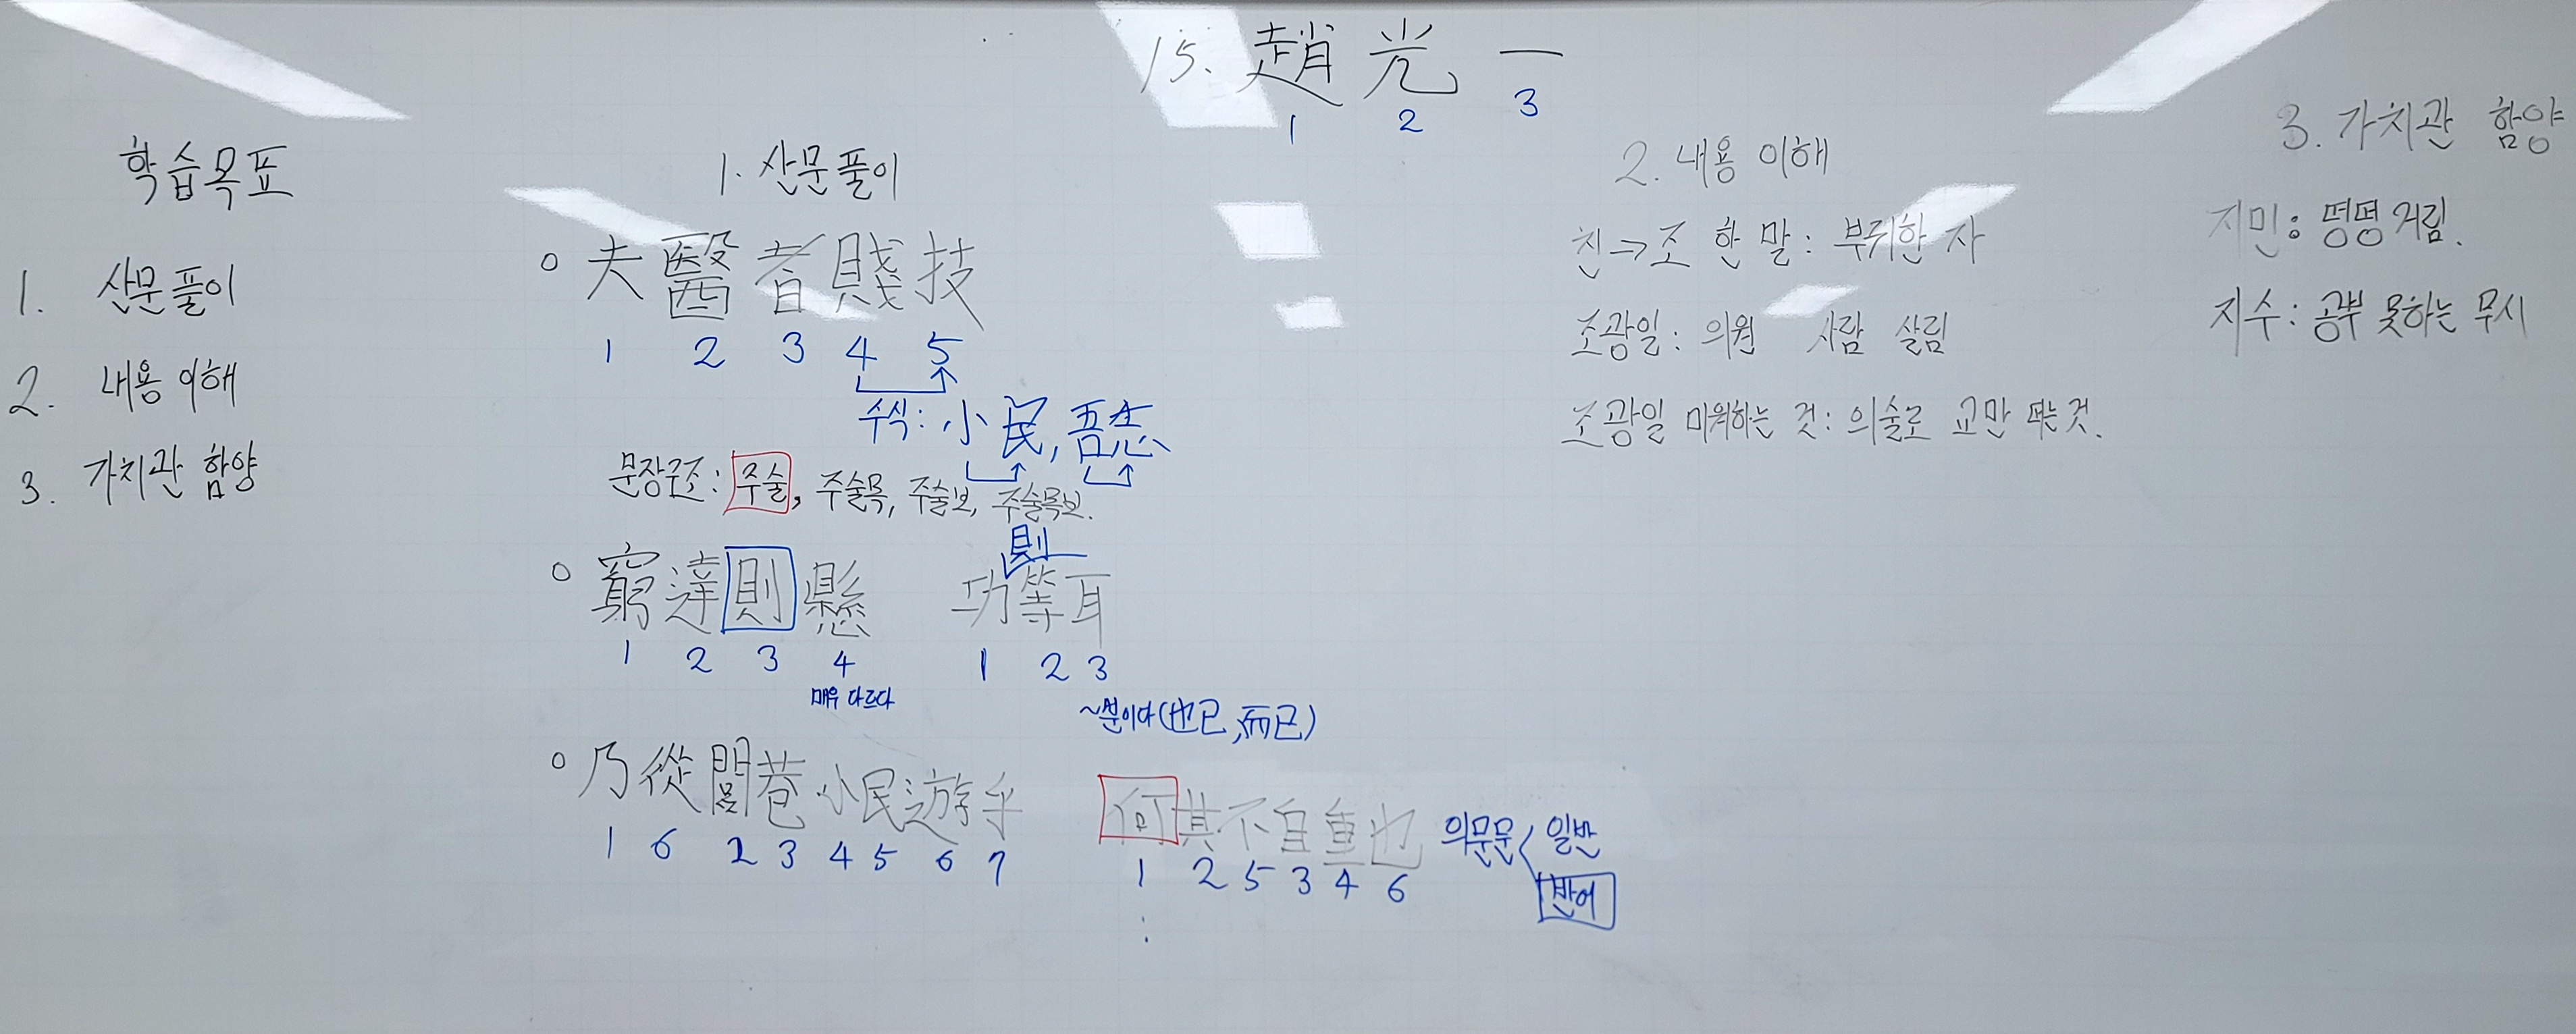 15. 趙光一
1 2 3
학습목표
1. 산문풀이
2. 내용 이해
3. 가치관 함양
1. 산문풀이
○ 夫醫者賤技
1 2 3 4 5
수식: 小民, 吾志
문장구조: 주술, 주술목, 주술보, 주술목보.
則
○ 窮達則懸 功等耳
1 2 3 4 1 2 3
매우 다르다
~뿐이다(也已, 而已)
○ 乃從閭巷小民遊乎 何其不自重也
1 6 2 3 4 5 6 7 1 2 5 3 4 6
:
의문문 일반
반어
2. 내용 이해
친→조 한 말: 부귀한 자
조광일: 의원 사람 살림
조광일 미워하는 것: 의술로 교만 떠는 것.
3. 가치관 함양
지민: 떵떵거림.
지수: 공부 못하는 무시